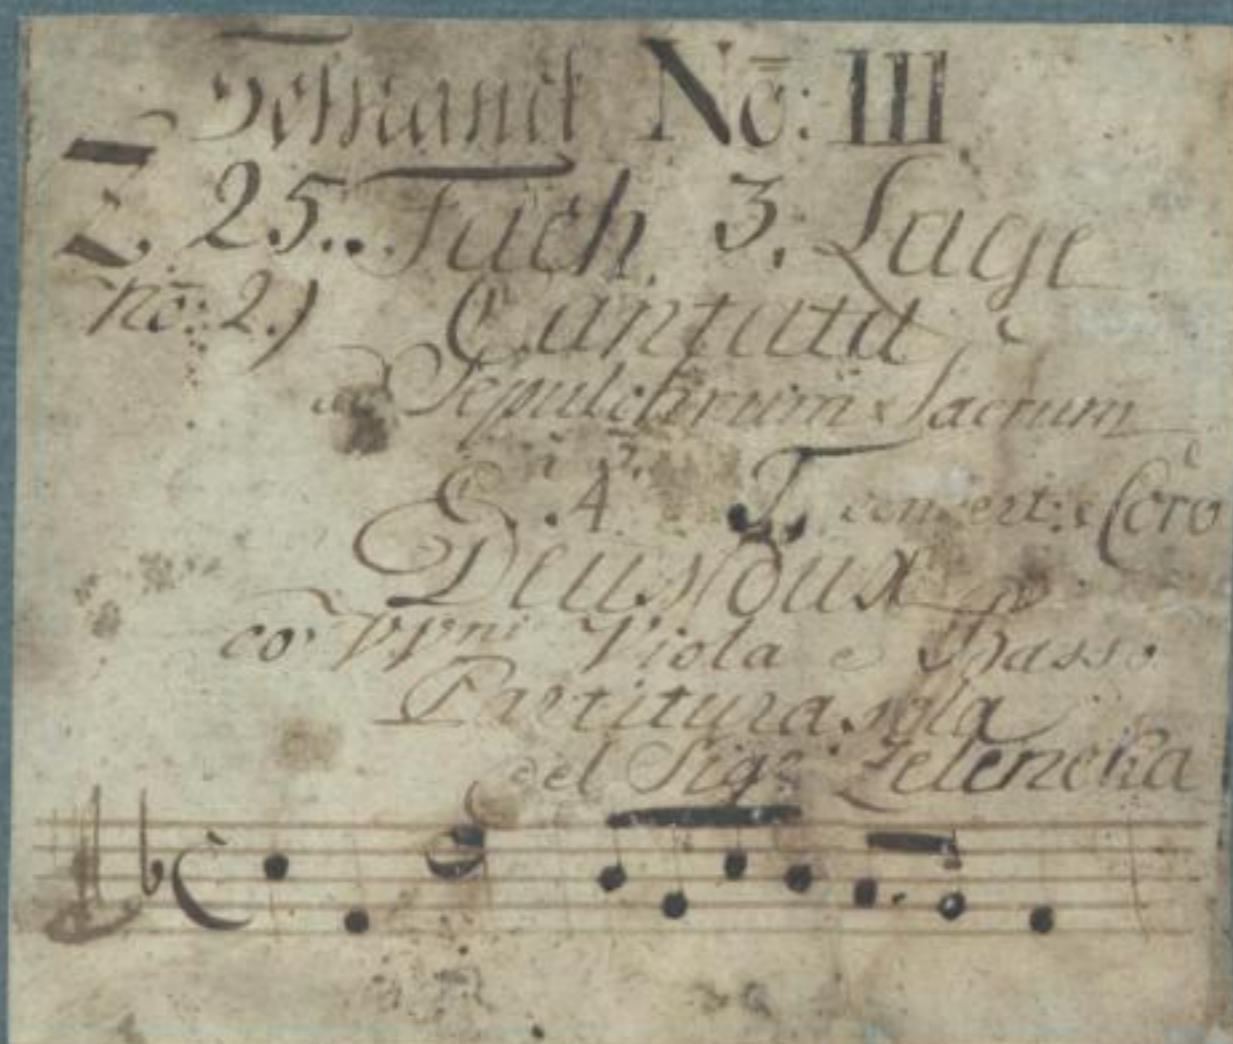 Schranck No: III
Z. 25. Fach 3. Lage
no: 2.) Cantata
ad Sepulchrum Sacrum
C. A. T. concert: e Coro
Deus Dux
co VVni Viola e Basso
Partitura sola
del Sigr Zelencka